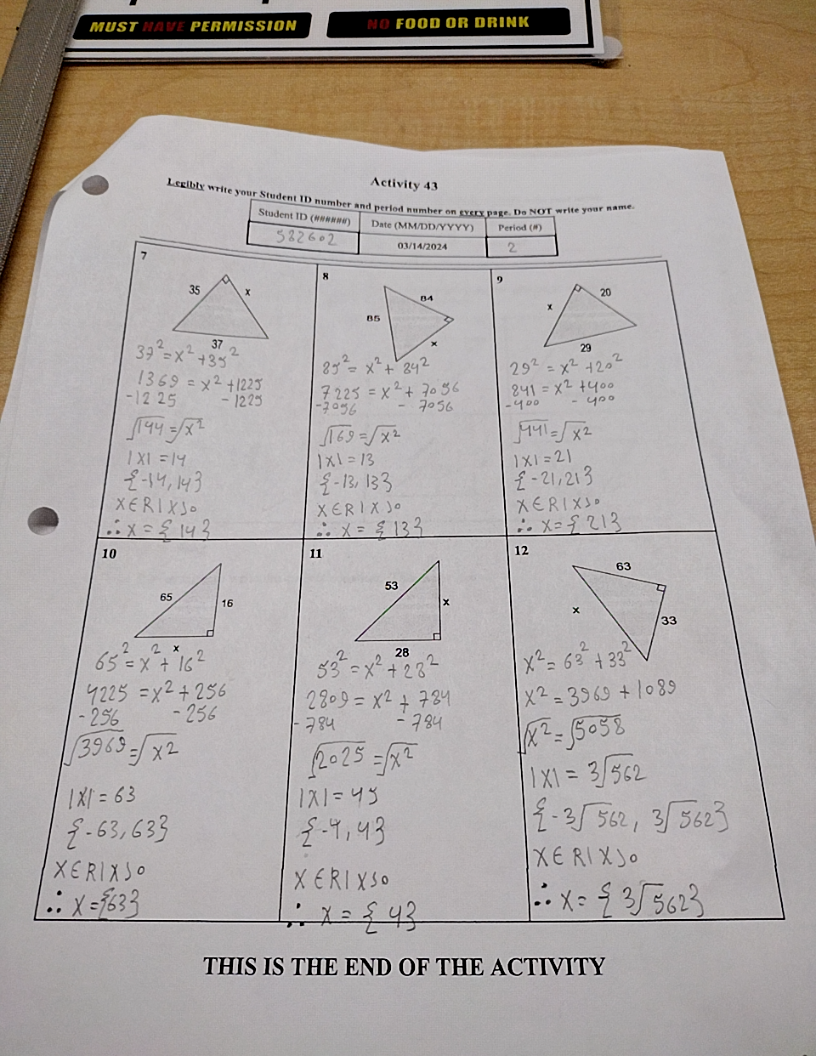 MUST HAVE PERMISSION
NO FOOD OR DRINK
Activity 43
Legibly write your Student ID number and period number on every page. Do NOT write your name.
Student ID (######) Date (MM/DD/YYYY) Period (#)
582602 03/14/2024 2
7
35
x
37
37² = x² + 35²
1369 = x² + 1225
-1225 - 1225
√144 = √x²
|x| = 14
{-14, 14}
x∈R|x≥0
∴ x = {14}
8
84
85
x
85² = x² + 84²
7225 = x² + 7056
-7056 - 7056
√169 = √x²
|x| = 13
{-13, 13}
x∈R|x≥0
∴ x = {13}
9
20
x
29
29² = x² + 20²
841 = x² + 400
-400 - 400
√441 = √x²
|x| = 21
{-21, 21}
x∈R|x≥0
∴ x = {21}
10
65
16
x
65² = x² + 16²
4225 = x² + 256
-256 -256
√3969 = √x²
|x| = 63
{-63, 63}
x∈R|x≥0
∴ x = {63}
11
53
x
28
53² = x² + 28²
2809 = x² + 784
-784 - 784
√2025 = √x²
|x| = 45
{-4, 4}
x∈R|x≥0
∴ x = {4}
12
63
x
33
x² = 63² + 33²
x² = 3969 + 1089
√x² = √5058
|x| = 3√562
{-3√562, 3√562}
x∈R|x≥0
∴ x = {3√562}
THIS IS THE END OF THE ACTIVITY